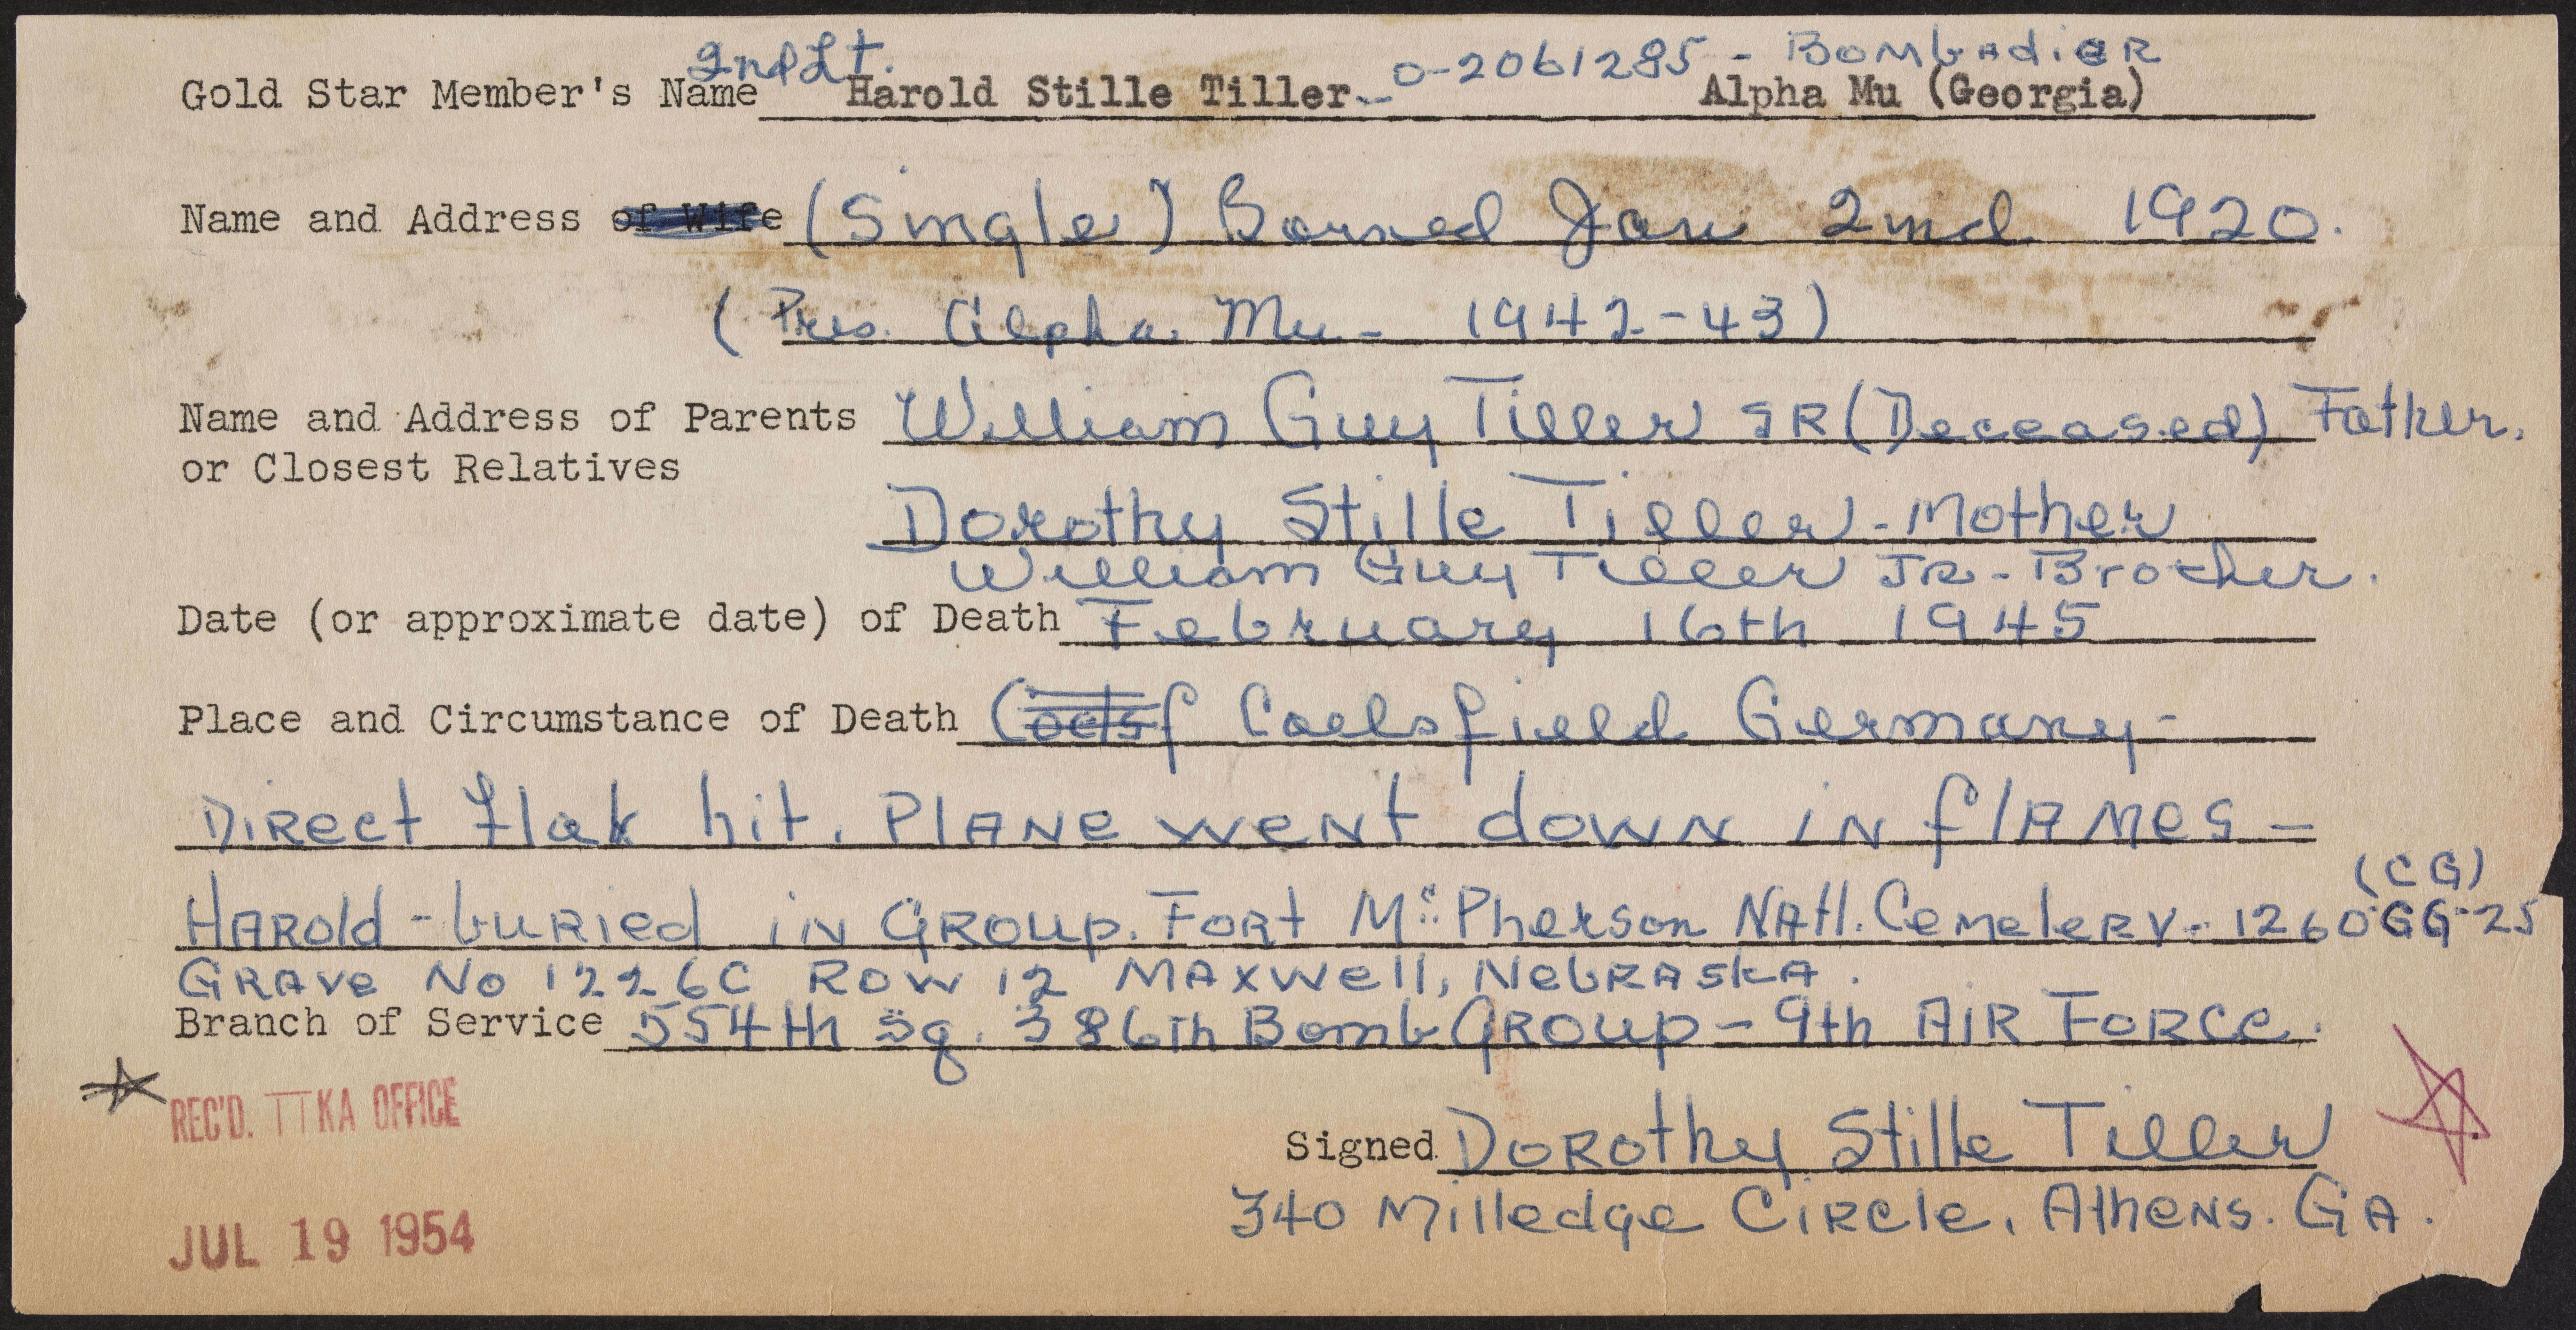 2nd Lt. O-2061285 - Bombadier
Gold Star Member's Name Harold Stille Tiller Alpha Mu (Georgia)
Name and Address of Wife (Single) Borned Jan 2nd 1920.
(Pres. Alpha Mu - 1942-43)
Name and Address of Parents William Guy Tiller SR (Deceased) Father.
or Closest Relatives
Dorothy Stille Tiller - Mother
William Guy Tiller JR - Brother.
Date (or approximate date) of Death February 16th 1945
Place and Circumstance of Death Coelsfield Germany-
Direct flak hit. PLANE went down in flAmes -
(CG)
Harold - buried in Group. Fort McPherson Natl. Cemetery - 1260 GG-25
Grave No 1226C Row 12 Maxwell, Nebraska.
Branch of Service 554th Sq. 386th Bomb Group - 9th Air Force.
REC'D. TTKA OFFICE
Signed Dorothy Stille Tiller
340 Milledge Circle, Athens. GA.
JUL 19 1954